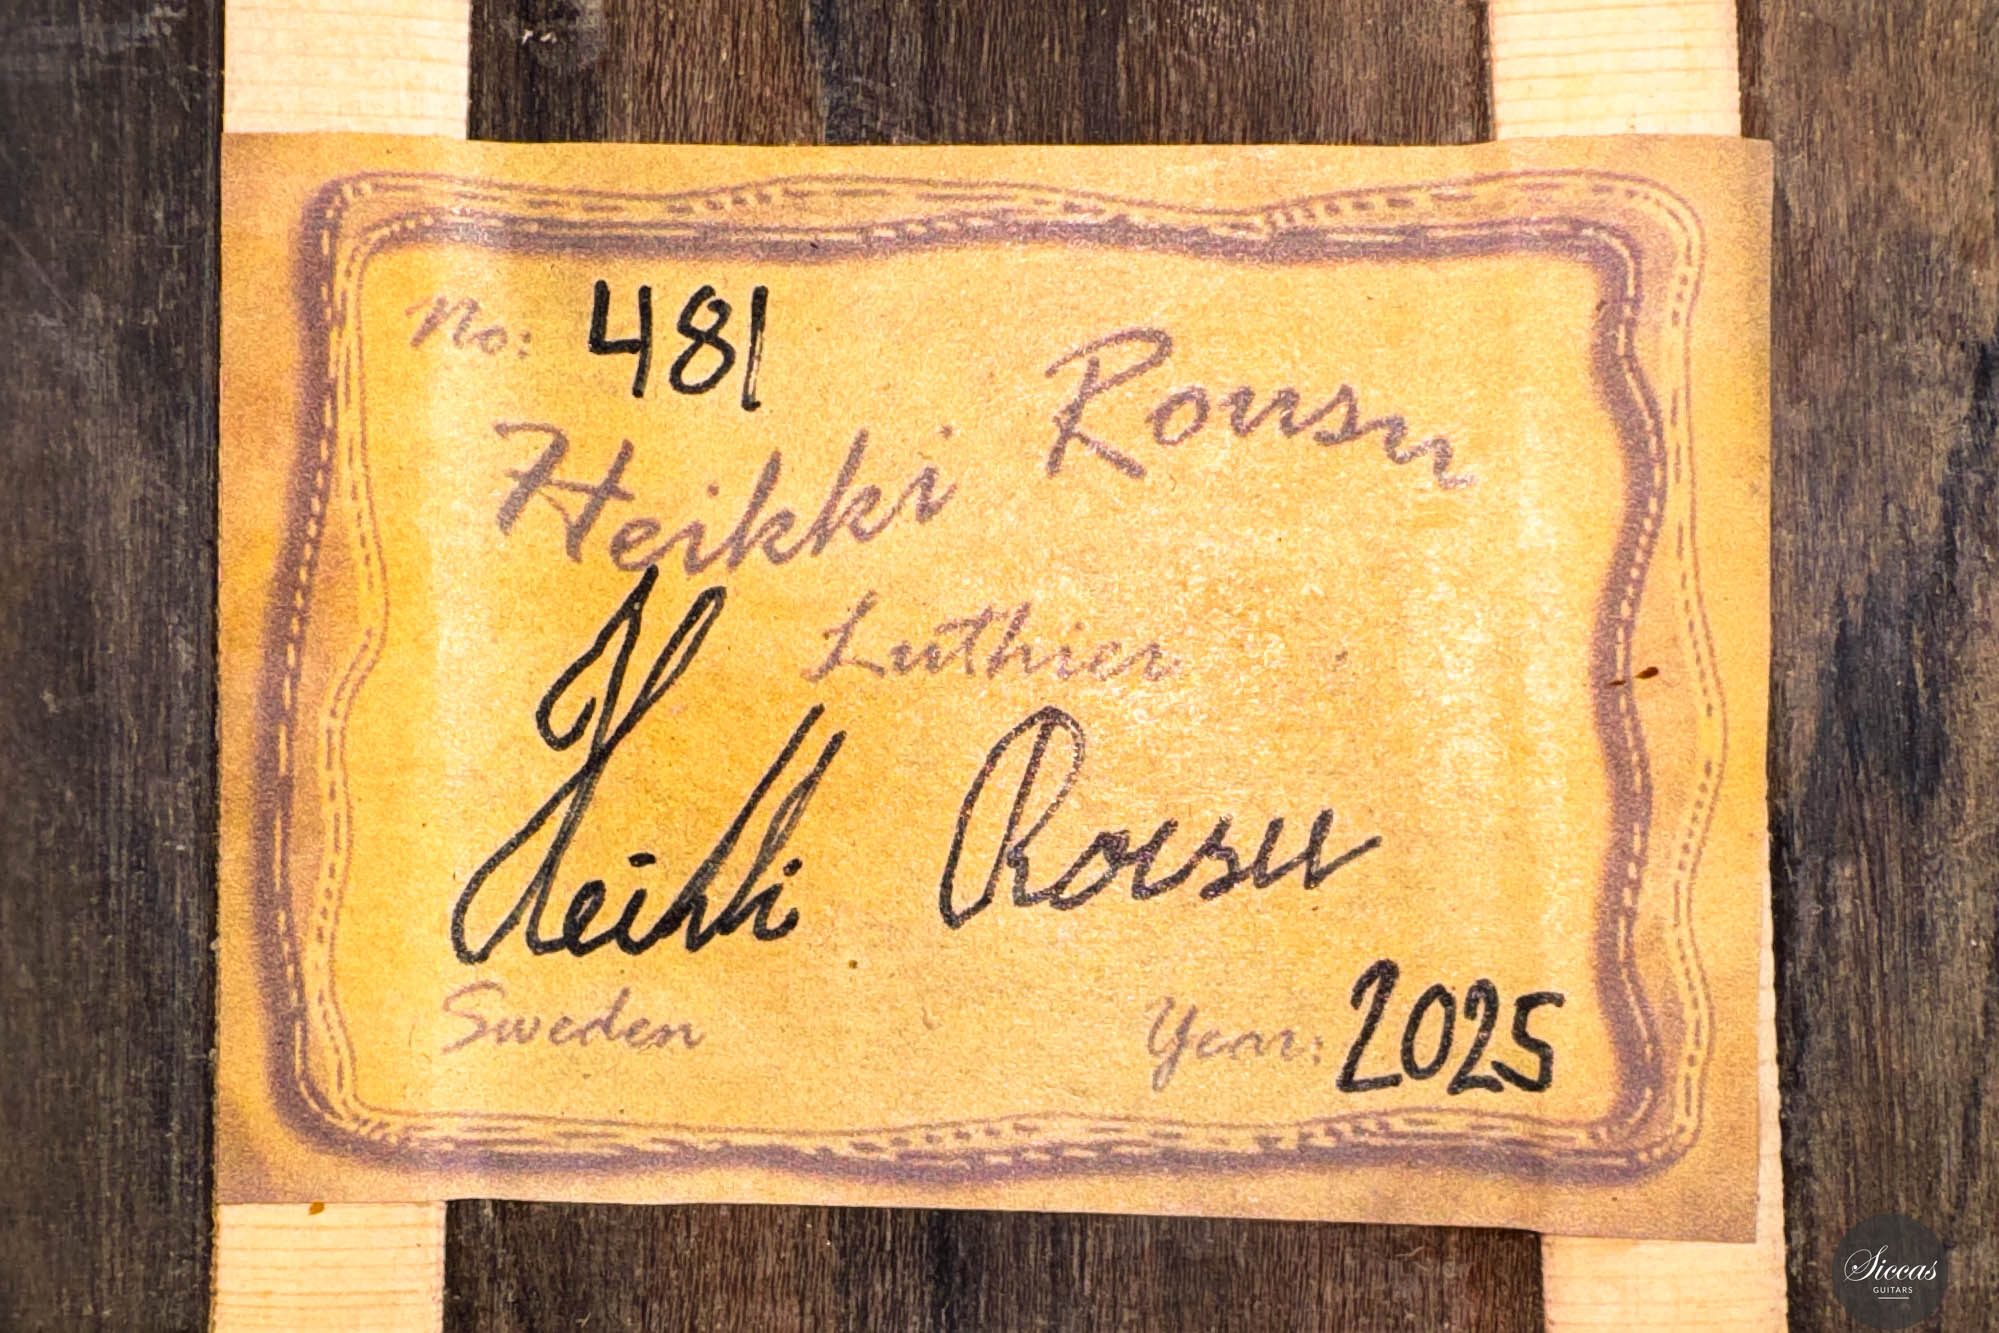 No: 481
Heikki Rousu
Luthier
Heikki Rousu
Sweden Year: 2025
Siccas
GUITARS